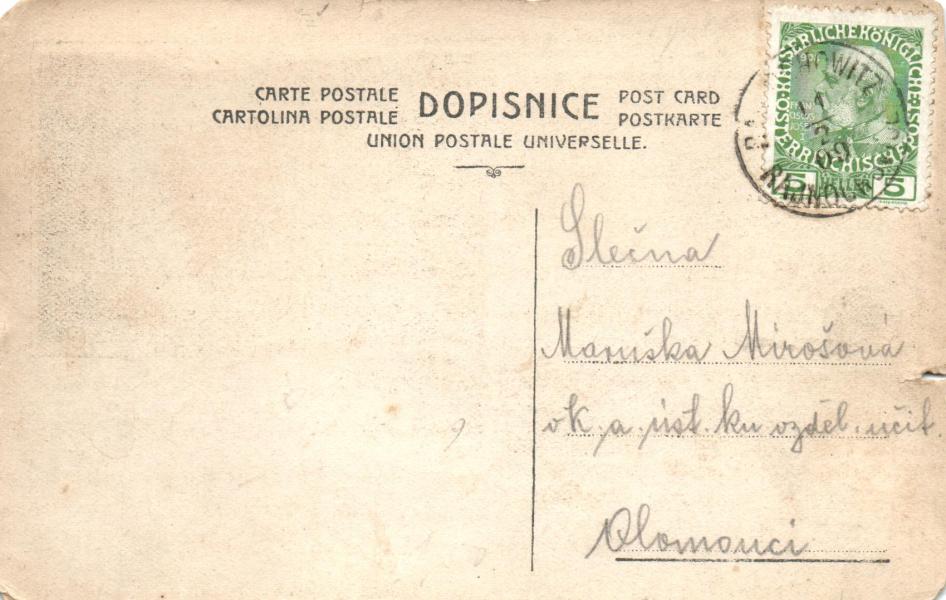 CARTE POSTALE DOPISNICE POST CARD
CARTOLINA POSTALE POSTKARTE
UNION POSTALE UNIVERSELLE.
KAISERLICHE KÖNIGLICHE
ÖSTERREICHISCHE POST
5 5
09
Slečna
Maruška Mirošová
ok. a. úst. ku vzděl. učit.
Olomouci